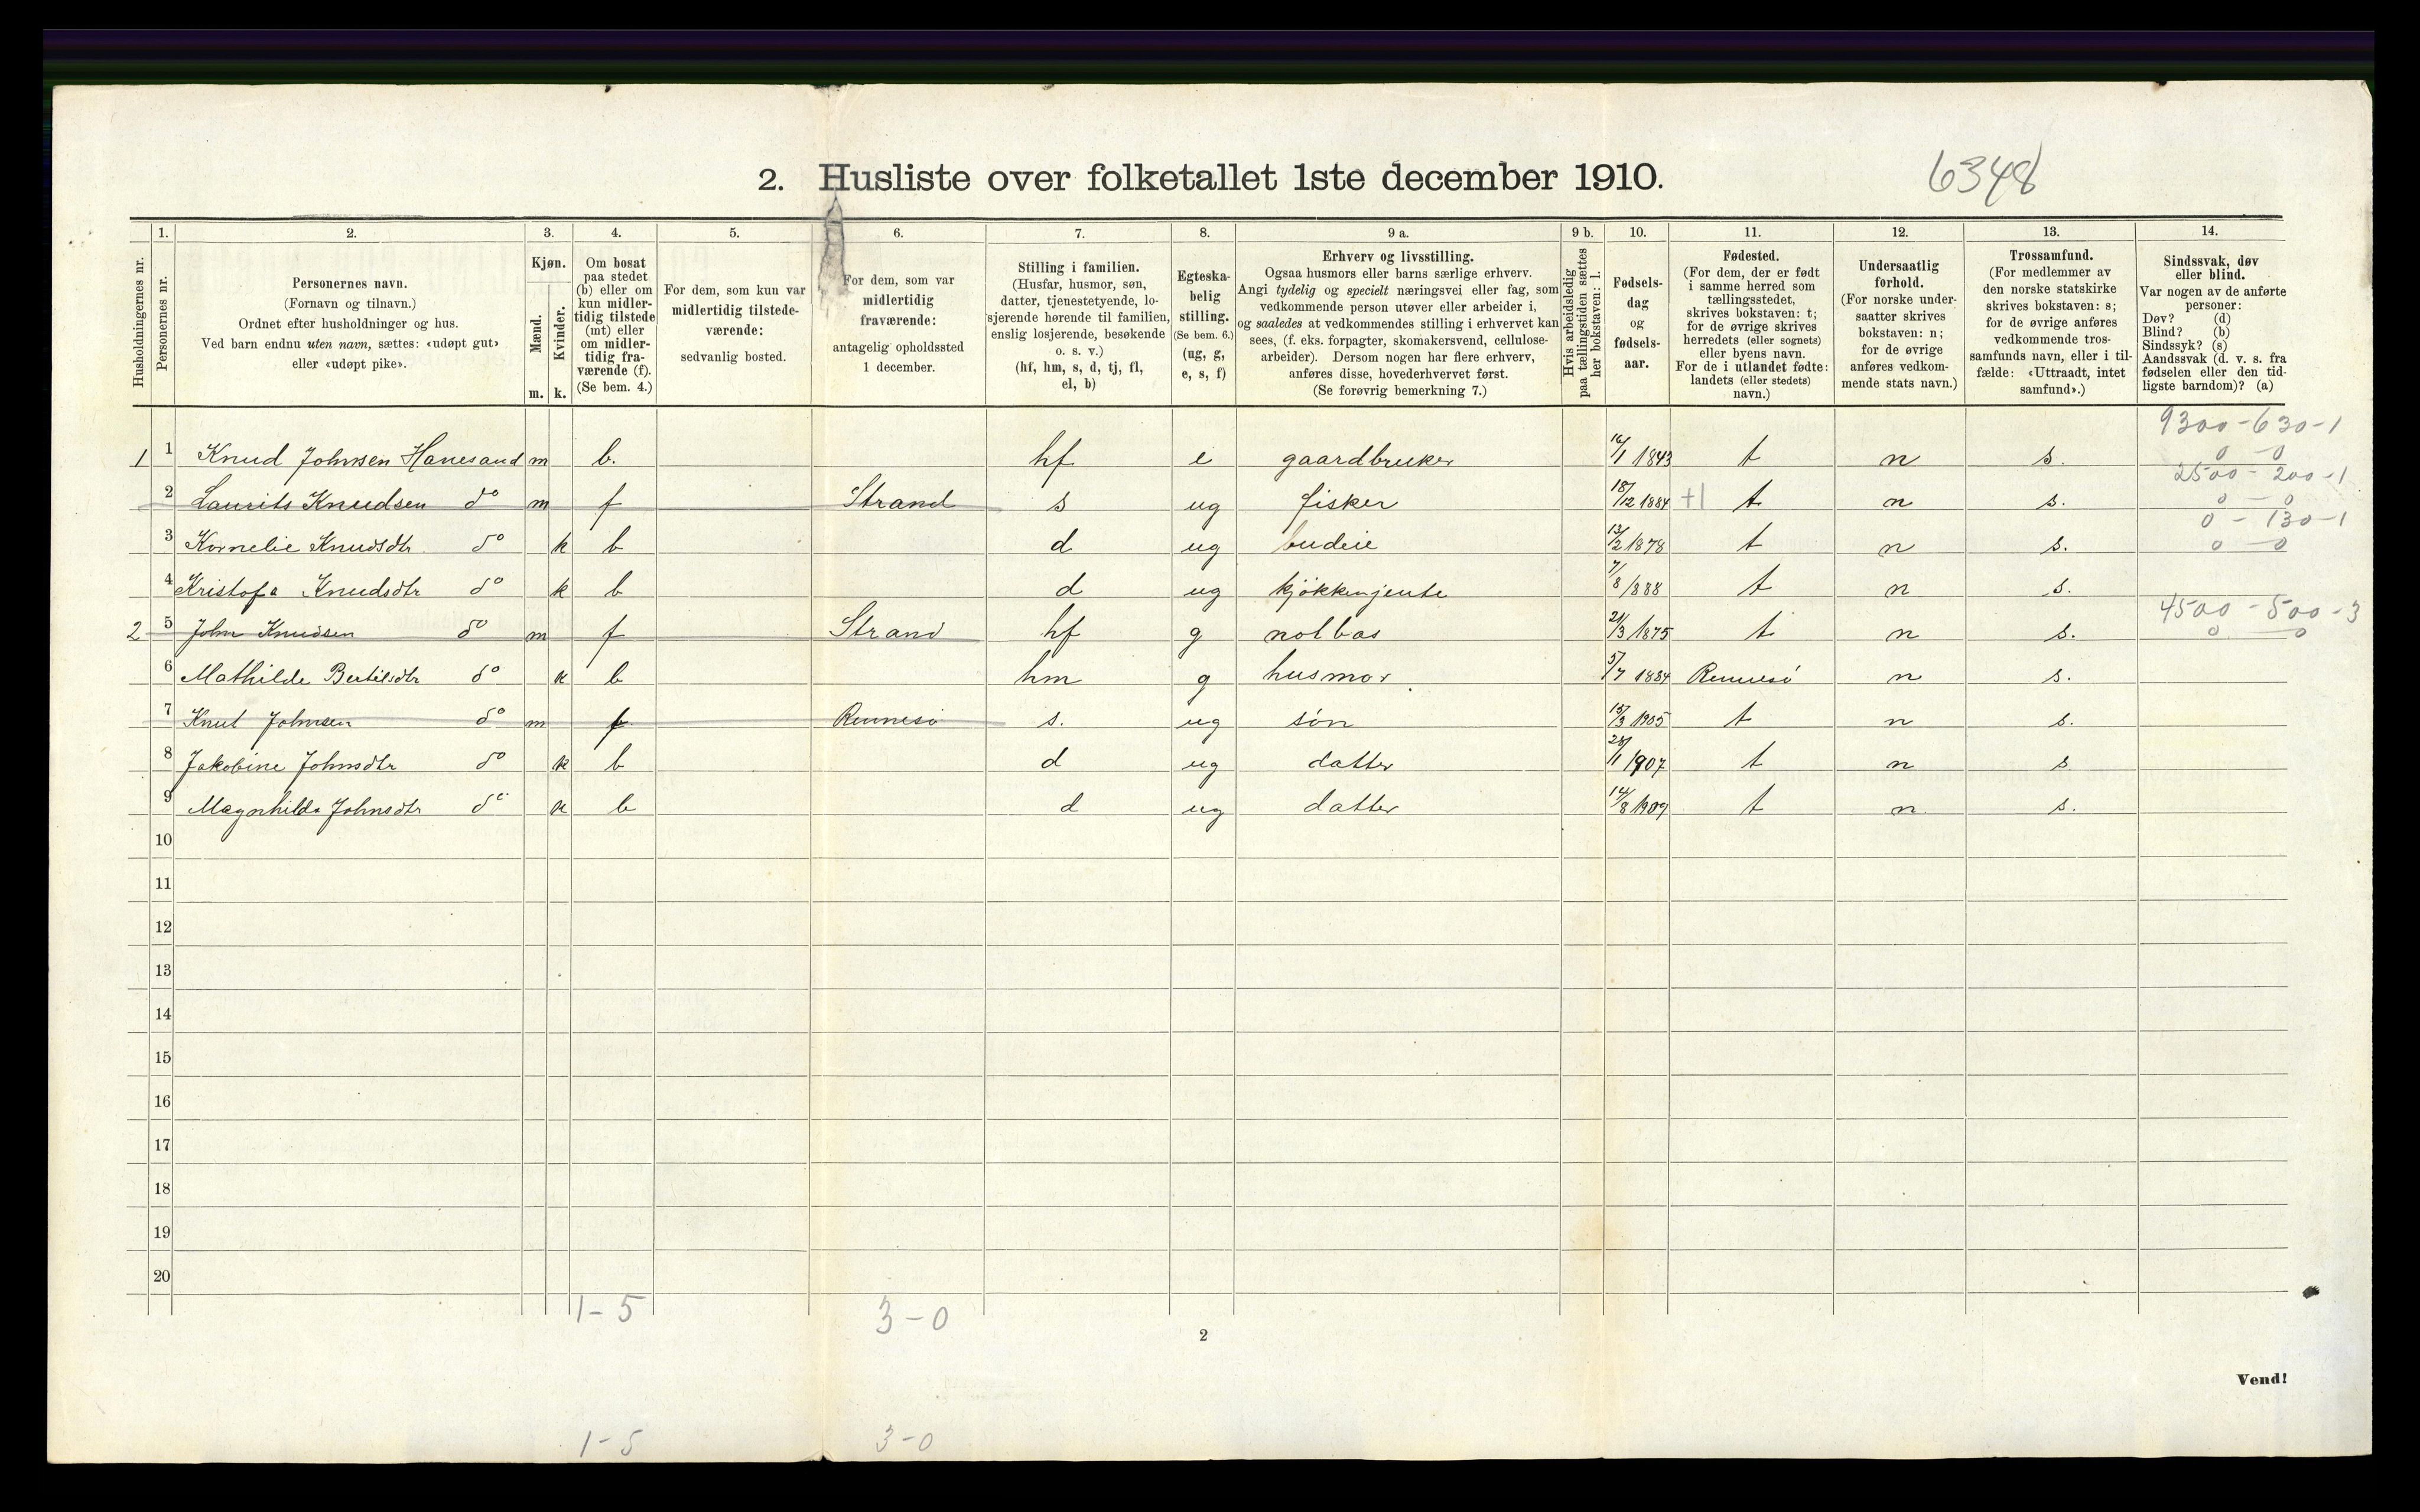 2. Husliste over folketallet 1ste december 1910.
6348
1. 2. 3. 4. 5. 6. 7. 8. 9 a. 9 b. 10. 11. 12. 13. 14.
Husholdningernes nr.
Personernes nr.
Personernes navn.
(Fornavn og tilnavn.)
Ordnet efter husholdninger og hus.
Ved barn endnu uten navn, sættes: «udøpt gut»
eller «udøpt pike».
Kjøn.
Mænd.
Kvinder.
m. k.
Om bosat
paa stedet
(b) eller om
kun midler-
tidig tilstede
(mt) eller
om midler-
tidig fra-
værende (f).
(Se bem. 4.)
For dem, som kun var
midlertidig tilstede-
værende:
sedvanlig bosted.
For dem, som var
midlertidig
fraværende:
antagelig opholdssted
1 december.
Stilling i familien.
(Husfar, husmor, søn,
datter, tjenestetyende, lo-
sjerende hørende til familien,
enslig losjerende, besøkende
o. s. v.)
(hf, hm, s, d, tj, fl,
el, b)
Egteska-
belig
stilling.
(Se bem. 6.)
(ug, g,
e, s, f)
Erhverv og livsstilling.
Ogsaa husmors eller barns særlige erhverv.
Angi tydelig og specielt næringsvei eller fag, som
vedkommende person utøver eller arbeider i,
og saaledes at vedkommendes stilling i erhvervet kan
sees, (f. eks. forpagter, skomakersvend, cellulose-
arbeider). Dersom nogen har flere erhverv,
anføres disse, hovederhvervet først.
(Se forøvrig bemerkning 7.)
Hvis arbeidsledig
paa tællingstiden sættes
her bokstaven: l.
Fødsels-
dag
og
fødsels-
aar.
Fødested.
(For dem, der er født
i samme herred som
tællingsstedet,
skrives bokstaven: t;
for de øvrige skrives
herredets (eller sognets)
eller byens navn.
For de i utlandet fødte:
landets (eller stedets)
navn.)
Undersaatlig
forhold.
(For norske under-
saatter skrives
bokstaven: n;
for de øvrige
anføres vedkom-
mende stats navn.)
Trossamfund.
(For medlemmer av
den norske statskirke
skrives bokstaven: s;
for de øvrige anføres
vedkommende tros-
samfunds navn, eller i til-
fælde: «Uttraadt, intet
samfund».)
Sindssvak, døv
eller blind.
Var nogen av de anførte
personer:
Døv? (d)
Blind? (b)
Sindssyk? (s)
Aandssvak (d. v. s. fra
fødselen eller den tid-
ligste barndom)? (a)
9300-630-1
1 1 Knud Johnsen Hanesand m b. hf e gaardbruker 16/1 1843 t n s. 0 - 0
2500 - 200-1
2 Laurits Knudsen do m f Strand s ug fisker 18/12 1884 +1 t n s. 0 - 0
0 - 130-1
3 Kornelie Knudsdtr do k b d ug budeie 13/2 1878 t n s. 0 - 0
4 Kristofa Knudsdtr do k b d ug kjøkkenjente 7/8 1888 t n s.
4500 - 500-3
2 5 John Knudsen do m f Strand hf g notbas 21/3 1875 t n s. 0 - 0
6 Mathilde Bertilsdtr do k b hm g husmor 5/7 1884 Rennesö n s.
7 Knut Johnsen do m f Rennesö s. ug sön 15/3 1905 t n s.
8 Jakobine Johnsdtr do k b d ug datter 28/1 1907 t n s
9 Magnhilda Johnsdtr do k b d ug datter 14/8 1909 t n s.
10
11
12
13
14
15
16
17
18
19
20
1-5 3-0
2
Vend!
1-5 3-0